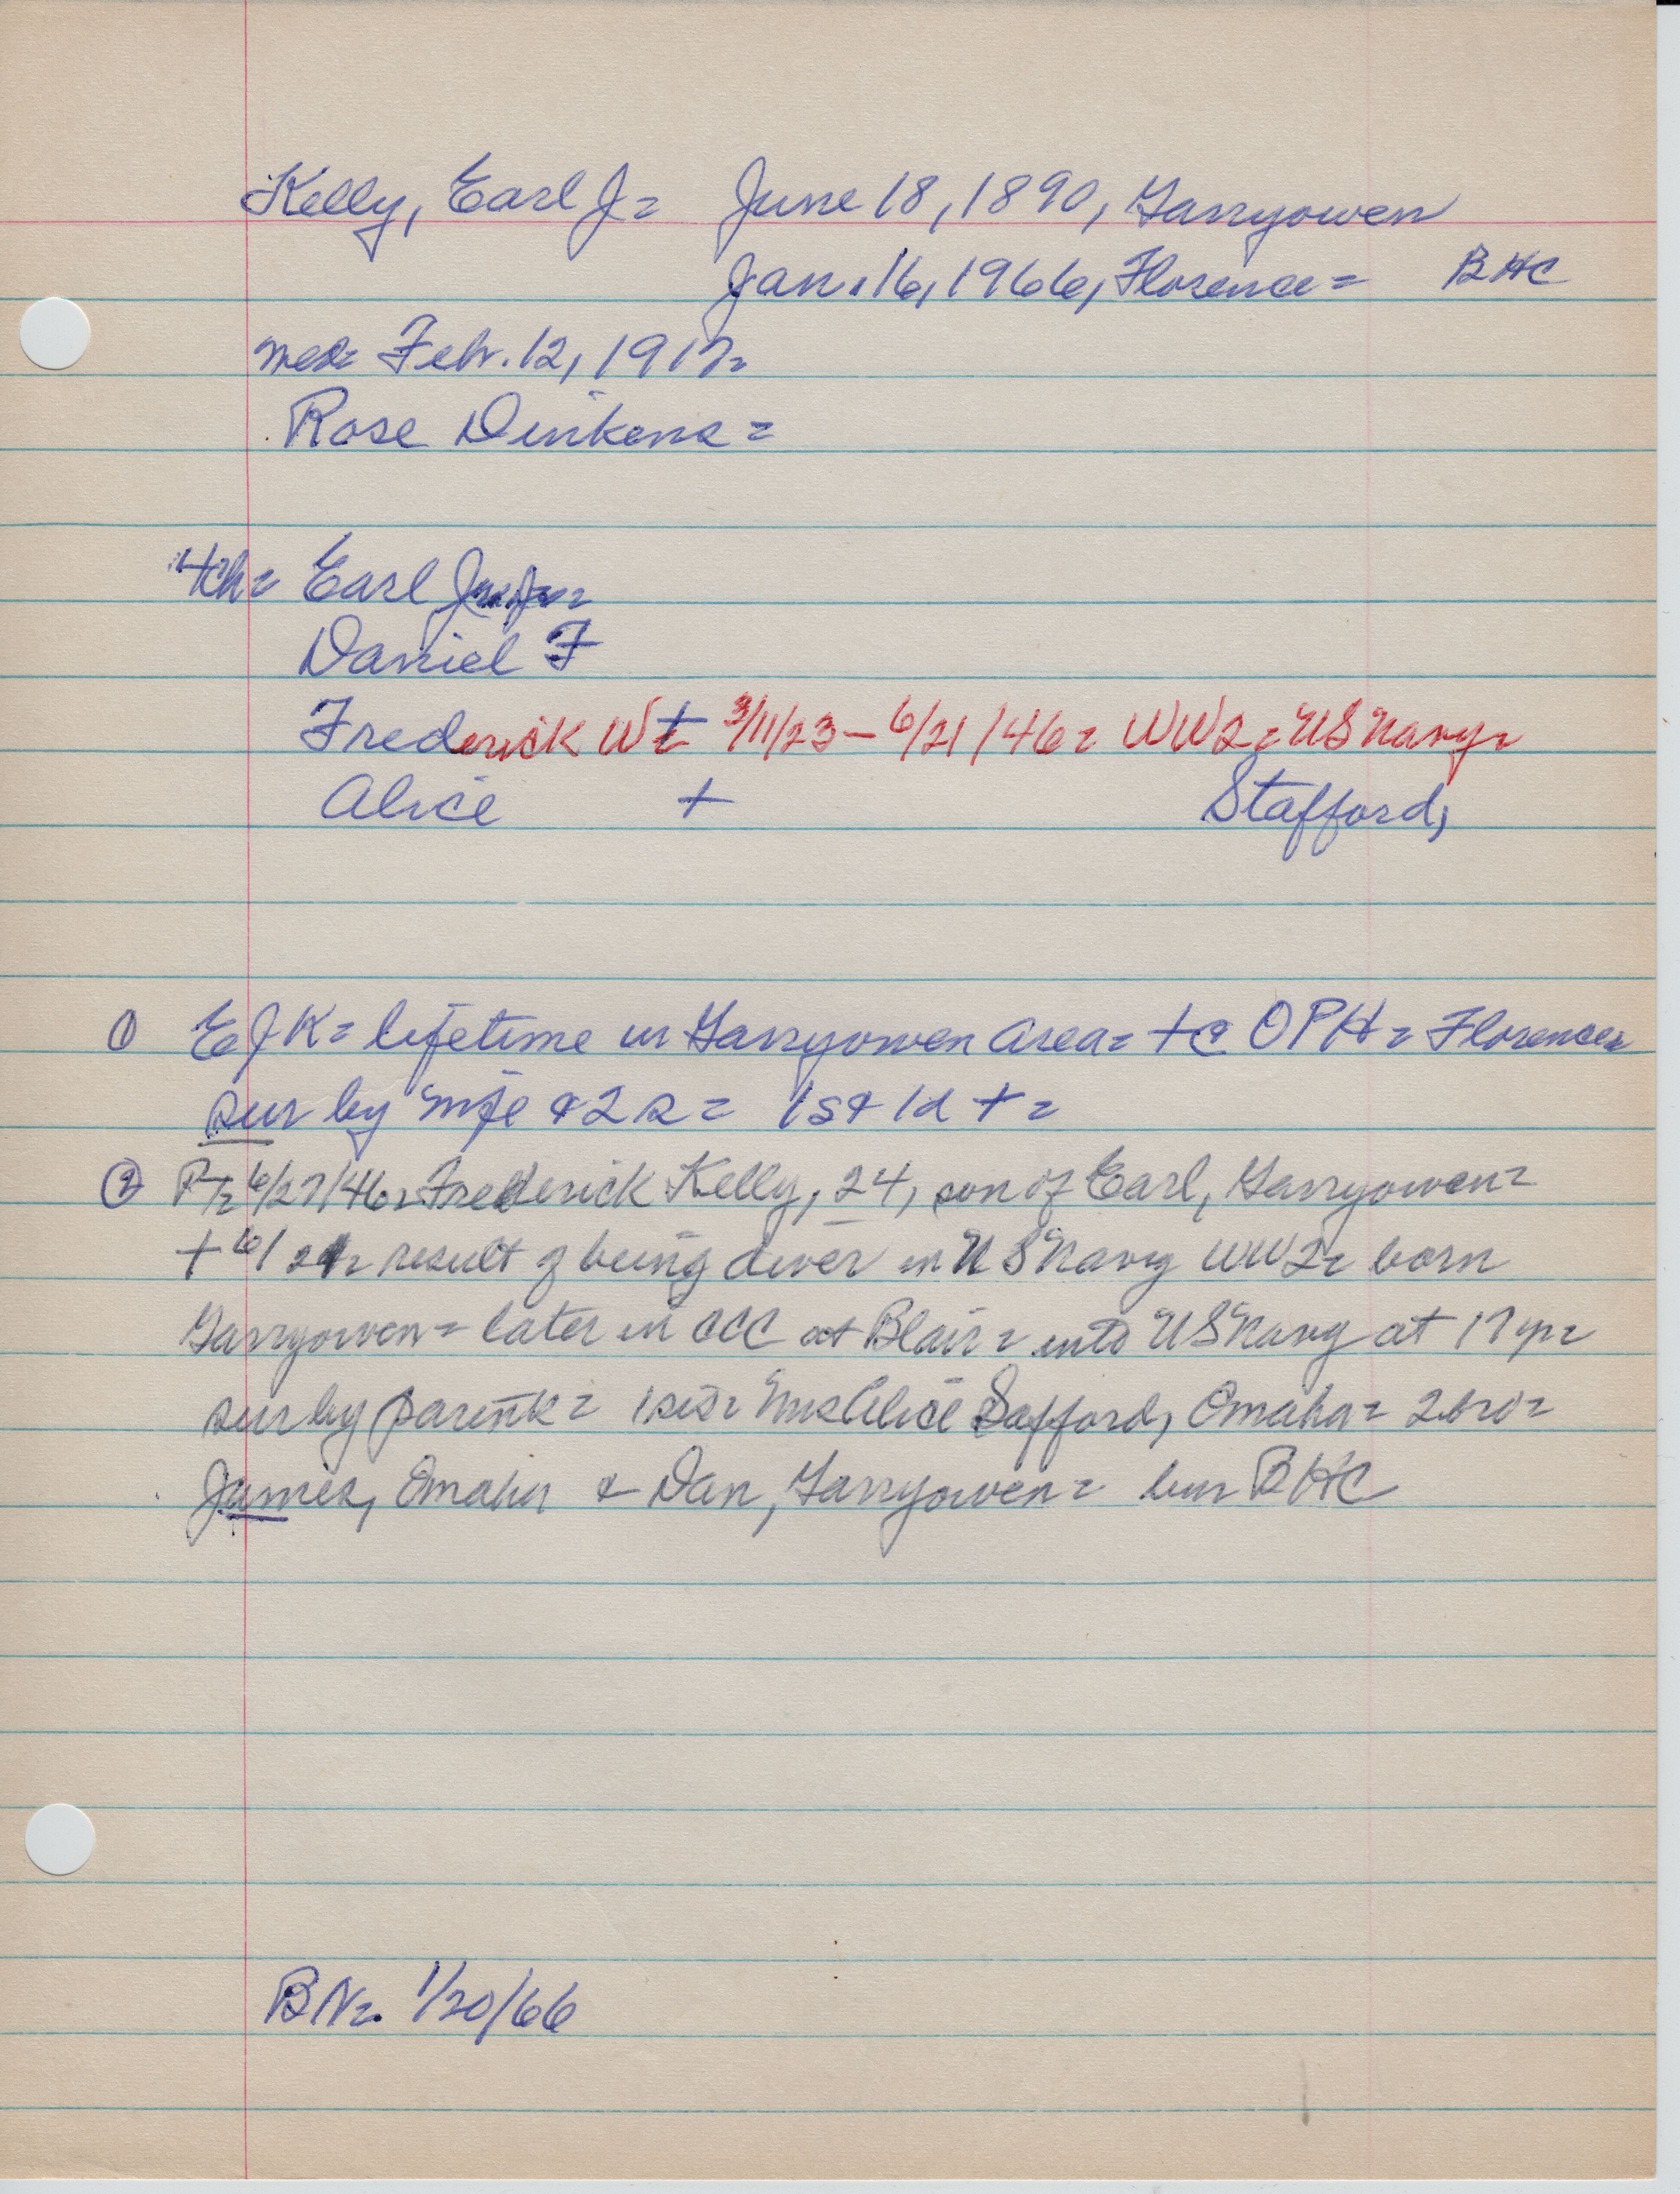 Kelly, Earl J= June 18, 1890, Garryowen
Jan. 16, 1966, Florence= BHC
med= Febr. 12, 1917=
Rose Dinkens=
4ch= Earl
Daniel F
Frederick W + 3/11/23 – 6/21/46= WW2= US Navy=
Alice + Stafford,
① EJK= lifetime in Garryowen area= + @ OPH= Florence=
sur by wife & 2 s= 1s & 1d +=
② 6/27/46= Frederick Kelly, 24, son of Earl, Garryowen=
+ 6/21= result of being diver in US Navy WW2= born
Garryowen= later in CCC at Blair= into US Navy at 17 yr=
sur by parents= 1 sis= Mrs Alice Safford, Omaha= 2 bro=
James, Omaha & Dan, Garryowen= bur BHC
BN=. 1/20/66